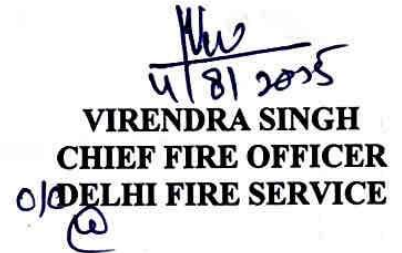 4/8/2025
VIRENDRA SINGH
CHIEF FIRE OFFICER
O/O DELHI FIRE SERVICE